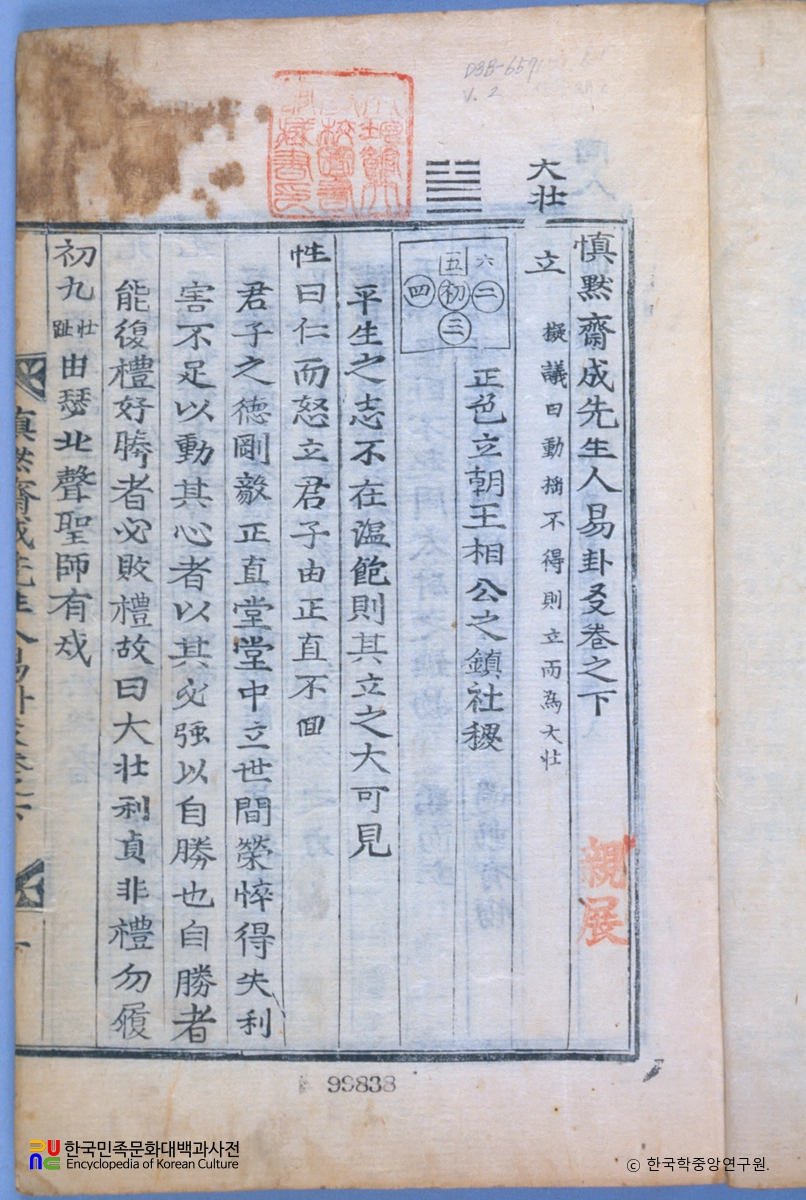 D3B-657
V. 2
大壯
慎默齋成先生人易卦爻卷之下
立 擬議曰動揺不得則立而為大壯
六二 五 初 三 四
正色立朝王相公之鎮社稷
平生之志不在溫飽則其立之大可見
性曰仁而怒立君子由正直不回
君子之德剛毅正直堂堂中立世間榮悴得失利
害不足以動其心者以其必强以自勝也自勝者
能復禮好勝者必敗禮故曰大壯利貞非禮勿履
初九 壯趾 由瑟北聲聖師有戒
親展
99838
한국민족문화대백과사전
Encyclopedia of Korean Culture
ⓒ 한국학중앙연구원.